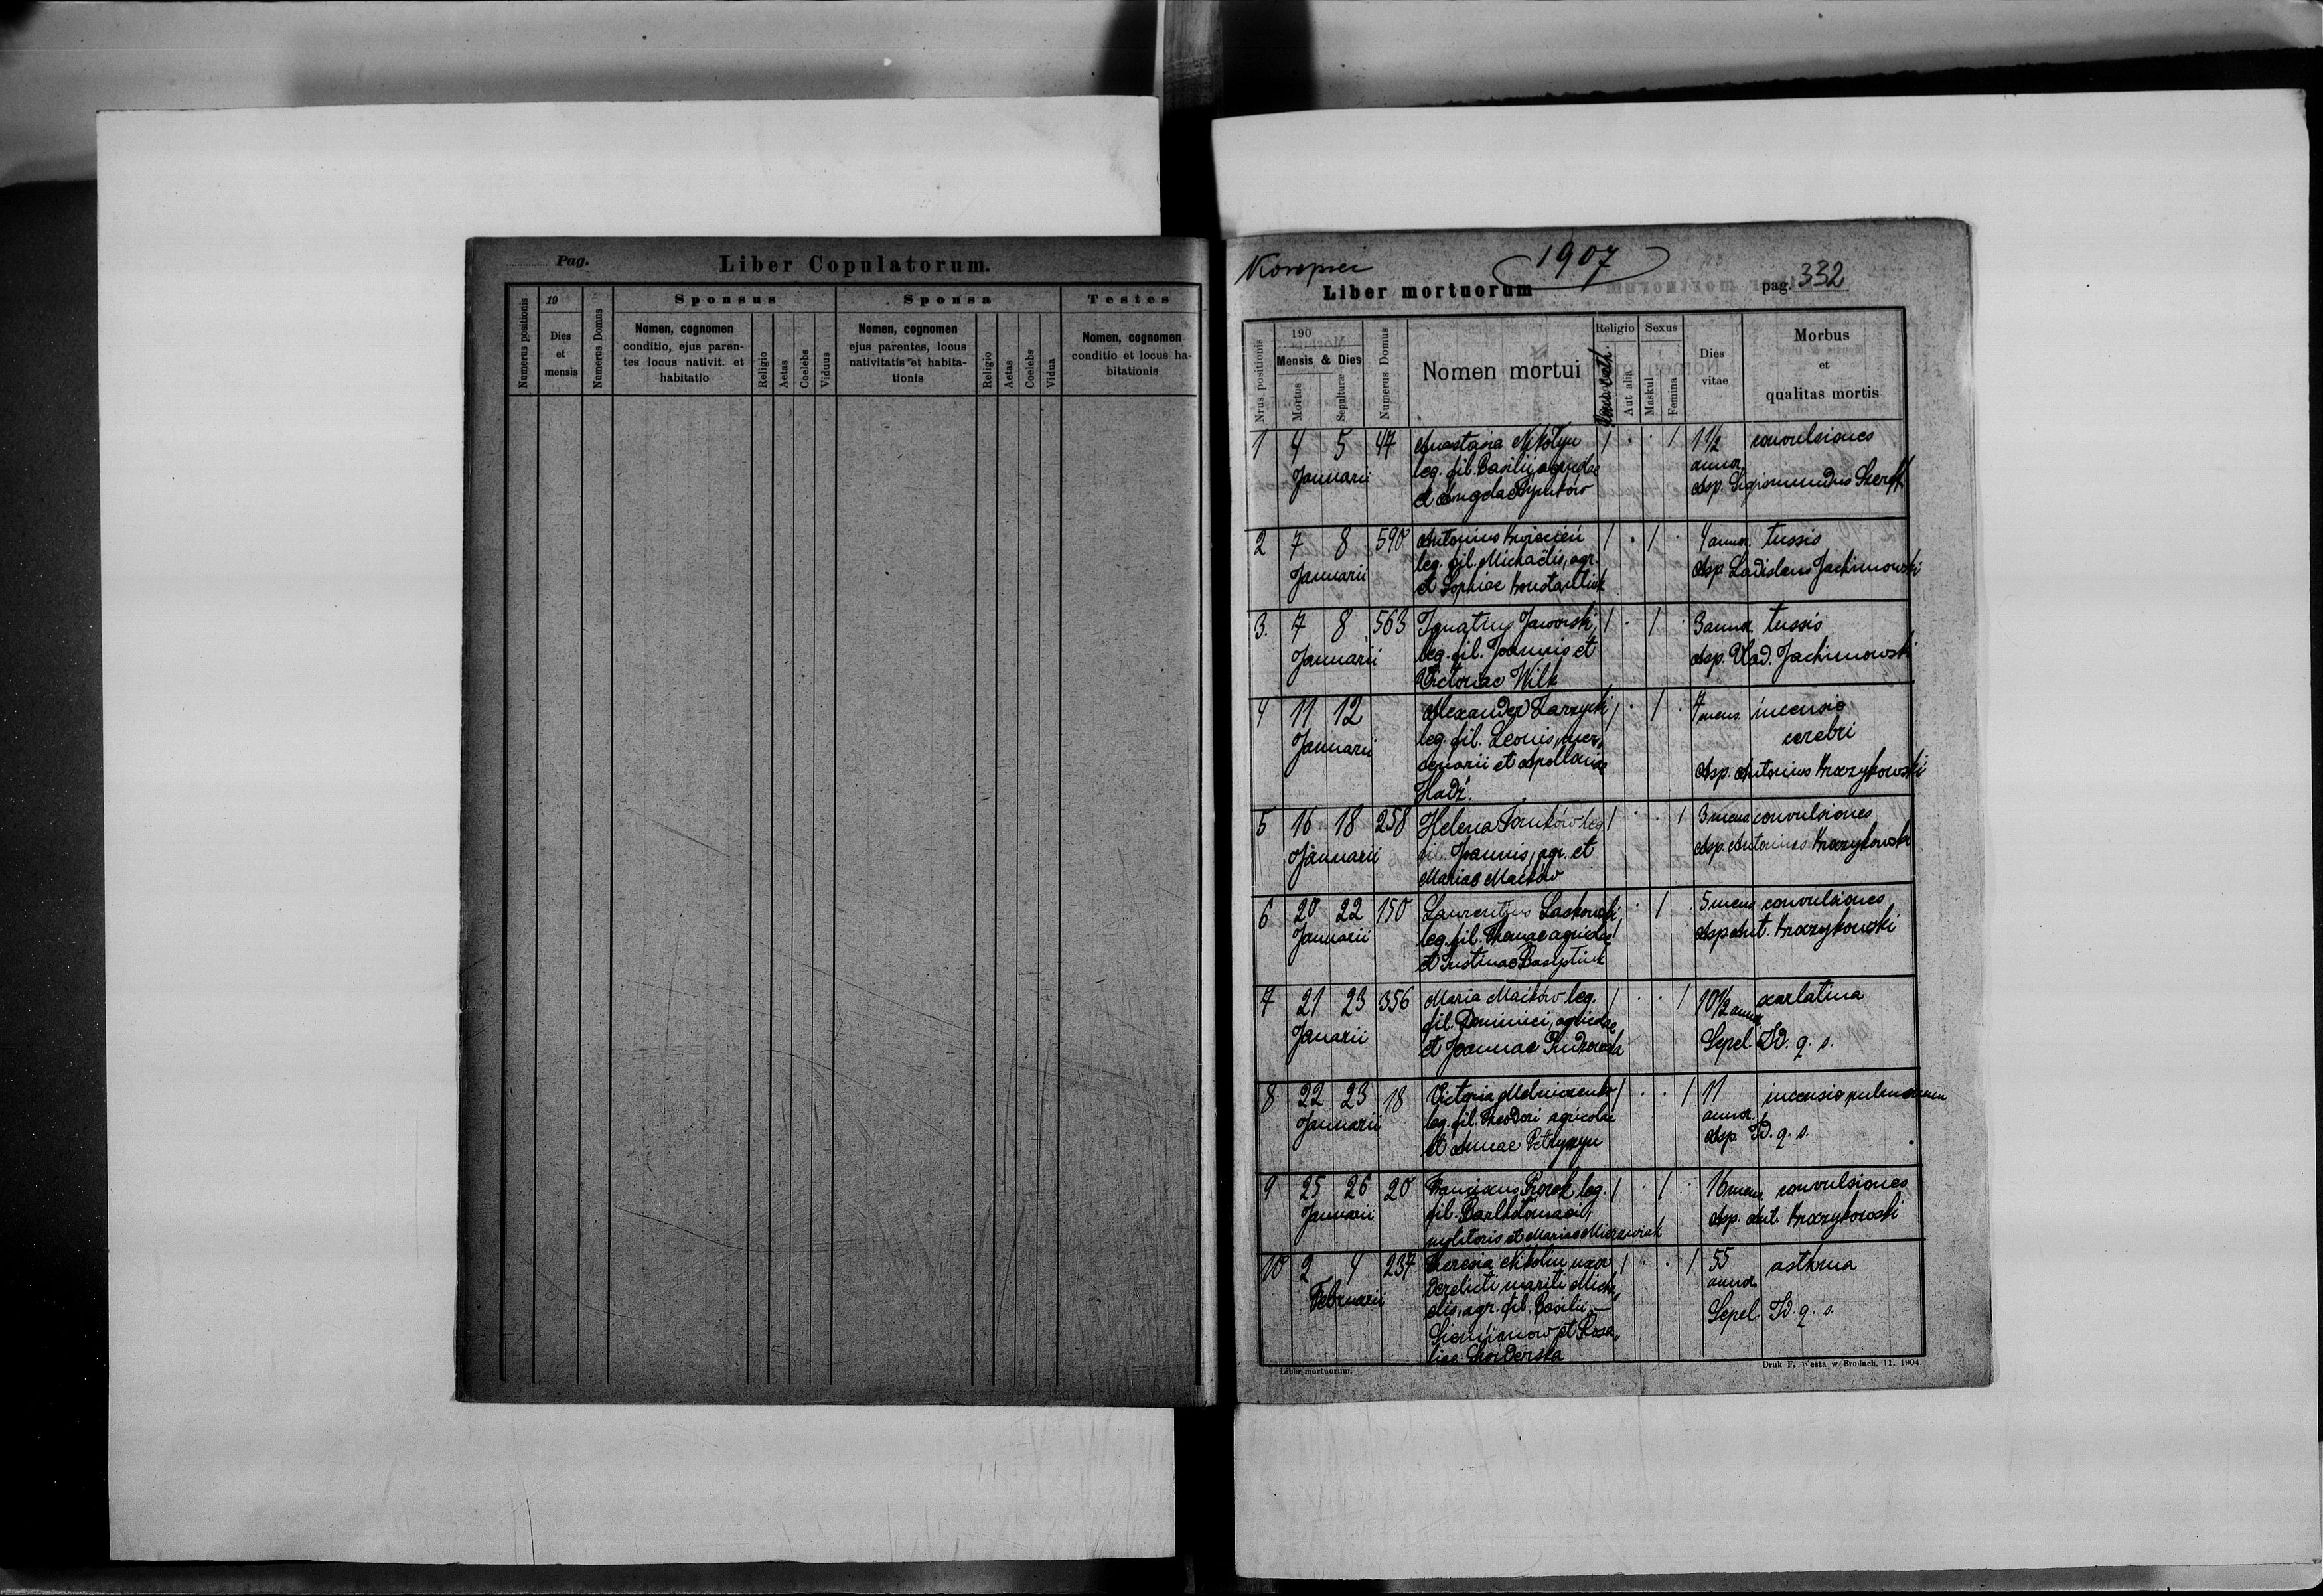 Pag.
Liber Copulatorum.
Numerus positionis
19
Dies
et
mensis
Numerus Domus
Sponsus
Nomen, cognomen
conditio, ejus paren-
tes locus nativit. et
habitatio
Religio
Aetas
Coelebs
Viduus
Sponsa
Nomen, cognomen
ejus parentes, locus
nativitatis et habita-
tionis
Religio
Aetas
Coelebs
Vidua
Testes
Nomen, cognomen
conditio et locus ha-
bitationis
1907
Liber mortuorum
pag. 332
Nrus. positionis
190
Mensis & Dies
Mortus
Sepulturæ
Numerus Domus
Nomen mortui
Religio
Aut alia
Sexus
Maskul
Femina
Dies
vitae
Morbus
et
qualitas mortis
1 4 5 47 Anastasia 1 1 1½ convulsiones
Januarii leg. fil. Basilii, agricolae annor.
et
2 7 8 590 Antonius 1 1 4 annor. tussis
Januarii leg. fil. Michaëlis, agr. Asp. Ladislaus Jachimowski
et Sophiae
3. 7 8 563 Ignatius Jaworski, 1 1 3 annor tussis
Januarii leg. fil. Joannis et Asp. Vlad. Jachimowski
Victoriae Wilk
4 11 12 Alexander Zarzycki 1 1 7 mens. incensio
Januarii leg. fil. Leonis, mer- cerebri
cenarii et Apolloniae Asp. Antonius
Hadź.
5 16 18 258 Helena leg 1 1 3 mens convulsiones
Januarii fil. Joannis, agr. et Asp. Antonius
Mariae Maćków
6 20 22 150 Laurentius Laskowski, 1 5 mens convulsiones
Januarii leg. fil. Thomae agricolae 1 Asp Ant.
et
7 21 23 356 Maria Maćków leg. 1 1 10½ annor. scarlatina
Januarii fil. Dominici, agricolae,
et Joannae Sepel. Id. q. s.
8 22 23 18 Victoria 1 1 11 incensio pulmonum
Januarii leg. fil. Theodori agricolae annor.
et Annae Asp. Id. q. s.
9 25 26 20 Franciscus leg. 1 1 16 mens convulsiones
Januarii fil. Bartholomaei, Asp. Ant.
et Mariae
10 2 4 237 Theresia uxor 1 1 55 asthma
Februarii derelicti mariti Micha- annor.
elis, agr. fil. Basilii Sepel. Id. q. s.
et Rosa-
liae
Liber mortuorum.
Druk F. Westa w Brodach. 11. 1904.